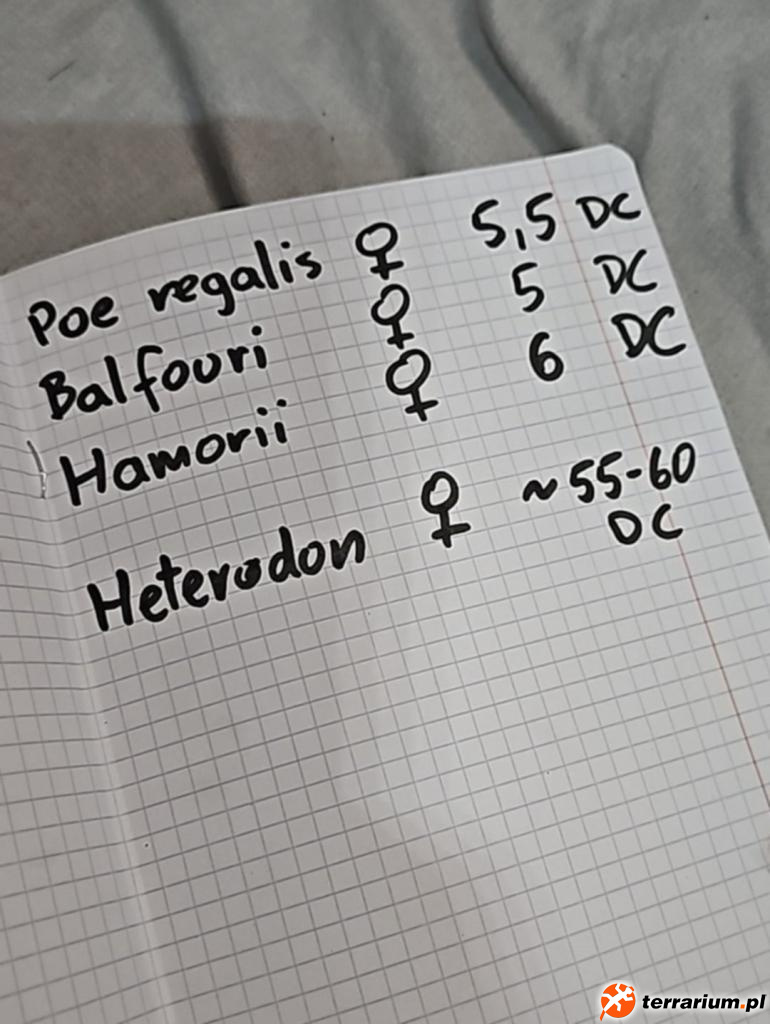 Poe regalis ♀ 5,5 DC
Balfouri ♀ 5 DC
Hamorii ♀ 6 DC
Heterodon ♀ ~55-60
DC
terrarium.pl